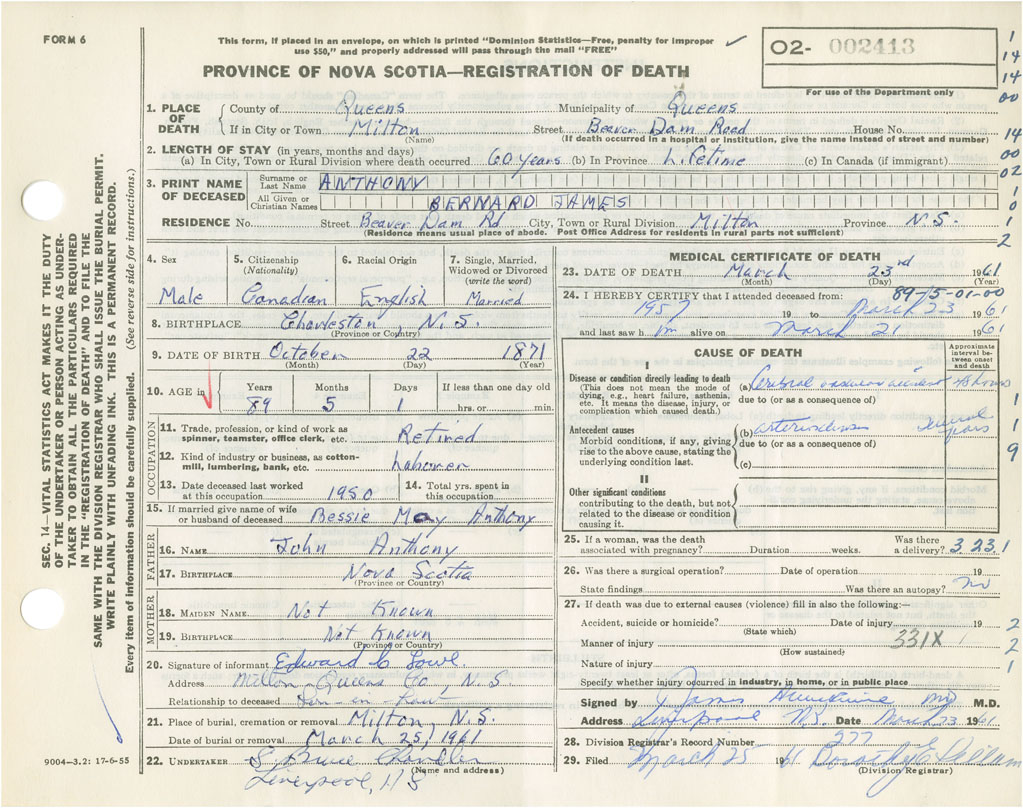 FORM 6
This form, if placed in an envelope, on which is printed "Dominion Statistics—Free, penalty for improper
use $50," and properly addressed will pass through the mail "FREE"
O2- 002413
For use of the Department only
PROVINCE OF NOVA SCOTIA—REGISTRATION OF DEATH
1. PLACE OF DEATH County of Queens Municipality of Queens
If in City or Town Milton Street Beaver Dam Road House No.
(Name) (If death occurred in a hospital or institution, give the name instead of street and number)
2. LENGTH OF STAY (in years, months and days)
(a) In City, Town or Rural Division where death occurred 60 years (b) In Province Lifetime (c) In Canada (if immigrant)
3. PRINT NAME OF DECEASED Surname or Last Name ANTHONY
All Given or Christian Names BERNARD JAMES
RESIDENCE No. Street Beaver Dam Rd City, Town or Rural Division Milton Province N.S.
(Residence means usual place of abode. Post Office Address for residents in rural parts not sufficient)
4. Sex Male
5. Citizenship (Nationality) Canadian
6. Racial Origin English
7. Single, Married, Widowed or Divorced (write the word) Married
8. BIRTHPLACE Charleston, N.S.
(Province or Country)
9. DATE OF BIRTH October 22 1871
(Month) (Day) (Year)
10. AGE in Years 89 Months 5 Days 1 If less than one day old hrs. or min.
OCCUPATION
11. Trade, profession, or kind of work as spinner, teamster, office clerk, etc. Retired
12. Kind of industry or business, as cotton-mill, lumbering, bank, etc. Laborer
13. Date deceased last worked at this occupation 1950
14. Total yrs. spent in this occupation
15. If married give name of wife or husband of deceased Bessie May Anthony
FATHER
16. NAME John Anthony
17. BIRTHPLACE Nova Scotia
(Province or Country)
MOTHER
18. MAIDEN NAME Not Known
19. BIRTHPLACE Not Known
(Province or Country)
20. Signature of informant Edward C Lowe
Address Milton Queens Co., N.S.
Relationship to deceased Son-in-Law
21. Place of burial, cremation or removal Milton, N.S.
Date of burial or removal March 25, 1961
22. UNDERTAKER S. Bruce Chandler
(Name and address)
Liverpool, N S
9004-3.2: 17-6-55
MEDICAL CERTIFICATE OF DEATH
23. DATE OF DEATH March 23rd 1961
(Month) (Day) (Year)
89-15-01-00
24. I HEREBY CERTIFY that I attended deceased from:
1957 19 to March 23 1961
and last saw him alive on March 21 1961
CAUSE OF DEATH
Approximate interval between onset and death
I
Disease or condition directly leading to death
(This does not mean the mode of dying, e.g., heart failure, asthenia, etc. It means the disease, injury, or complication which caused death.)
(a) Cerebral vascular accident 48 hours
due to (or as a consequence of)
Antecedent causes
Morbid conditions, if any, giving rise to the above cause, stating the underlying condition last.
(b) arteriosclerosis several years
due to (or as a consequence of)
(c)
II
Other significant conditions
contributing to the death, but not related to the disease or condition causing it.
25. If a woman, was the death associated with pregnancy? Duration weeks. Was there a delivery? 3 23 1
26. Was there a surgical operation? Date of operation 19
State findings Was there an autopsy? no
27. If death was due to external causes (violence) fill in also the following:—
Accident, suicide or homicide? Date of injury 19
(State which)
Manner of injury 331X
(How sustained)
Nature of injury
Specify whether injury occurred in industry, in home, or in public place
Signed by J James MD M.D.
Address Liverpool N.S. Date March 23 1961
28. Division Registrar's Record Number 277
29. Filed March 25 1961 Dorothy E.
(Division Registrar)
1
14
14
00
14
00
02
1
0
1
2
1
1
9
2
2
1
SEC. 14—VITAL STATISTICS ACT MAKES IT THE DUTY
OF THE UNDERTAKER OR PERSON ACTING AS UNDER-
TAKER TO OBTAIN ALL THE PARTICULARS REQUIRED
IN THE "REGISTRATION OF DEATH" AND TO FILE THE
SAME WITH THE DIVISION REGISTRAR WHO SHALL ISSUE THE BURIAL PERMIT.
WRITE PLAINLY WITH UNFADING INK. THIS IS A PERMANENT RECORD.
Every item of information should be carefully supplied. (See reverse side for instructions.)